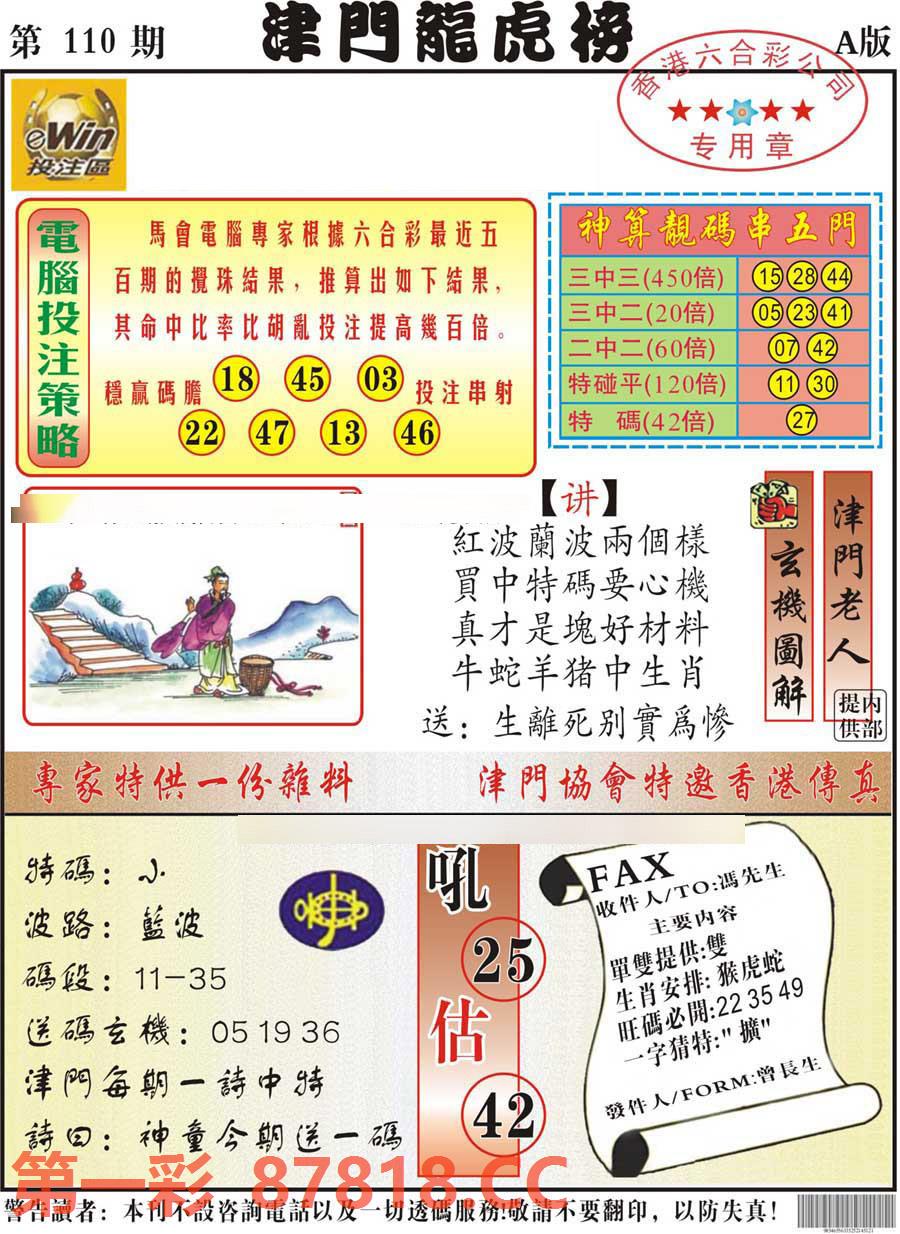 第 110 期
津門龍虎榜
A版
香港六合彩公司
专用章
eWin
投注區
電腦投注策略
馬會電腦專家根據六合彩最近五
百期的攪珠結果，推算出如下結果，
其命中比率比胡亂投注提高幾百倍。
穩贏碼膽 18 45 03 投注串射
22 47 13 46
神算靚碼串五門
三中三(450倍) 15 28 44
三中二(20倍) 05 23 41
二中二(60倍) 07 42
特碰平(120倍) 11 30
特 碼(42倍) 27
【讲】
紅波蘭波兩個樣
買中特碼要心機
真才是塊好材料
牛蛇羊猪中生肖
送：生離死别實爲慘
玄機圖解
津門老人
内部提供
專家特供一份雜料
津門協會特邀香港傳真
特碼：小
波路：藍波
碼段：11-35
送碼玄機：05 19 36
津門每期一詩中特
詩曰：神童今期送一碼
吼
25
估
42
FAX
收件人/TO:馮先生
主要内容
單雙提供:雙
生肖安排:猴虎蛇
旺碼必開:22 35 49
一字猜特:"擴"
發件人/FORM:曾長生
第一彩 87818.CC
警告讀者：本刊不設咨詢電話以及一切透碼服務!敬請不要翻印，以防失真！